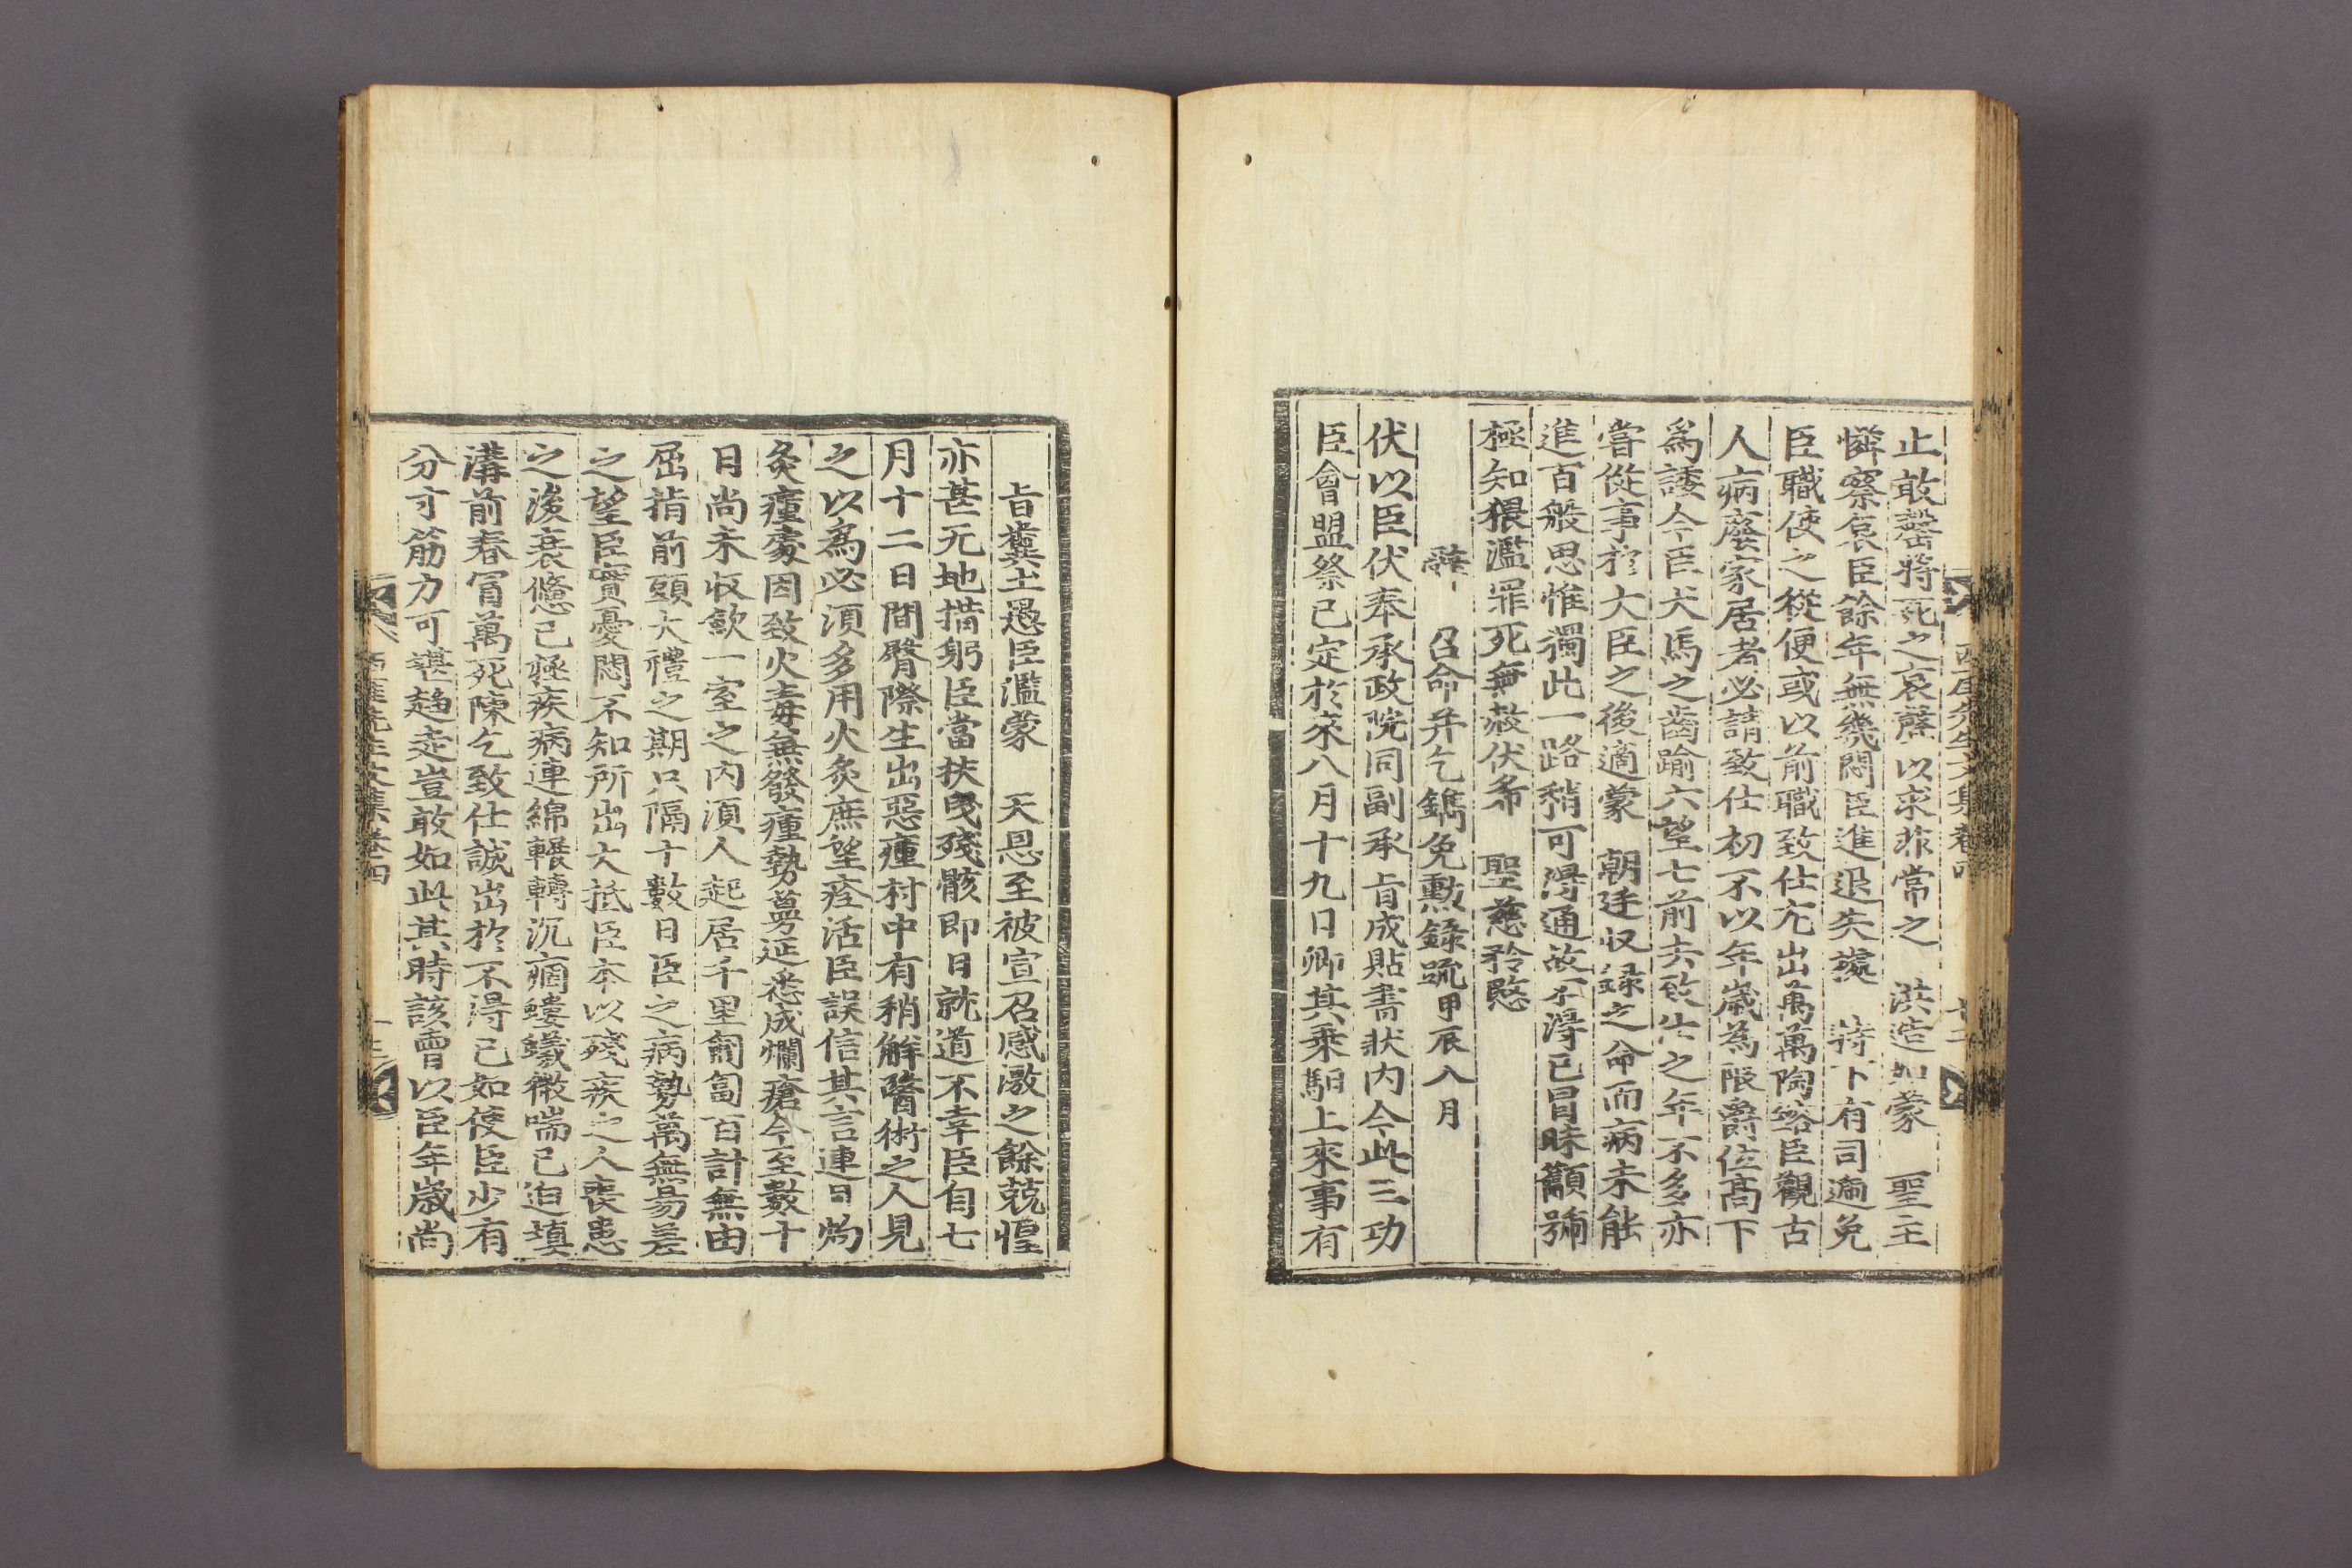 止敢罄將死之哀蘄以求非常之　洪造如蒙　聖主
憐察哀臣餘年無幾悶臣進退失處　特下有司遍免
臣職使之從便或以前職致仕尤出萬萬陶鎔臣觀古
人病廢家居者必請致仕初不以年歲為限爵位高下
爲諉今臣犬馬之齒踰六望七前去致仕之年不多亦
嘗從事於大臣之後適蒙　朝廷收錄之命而病未能
進百般思惟獨此一路稍可得通故不得已冒昧籲號
極知猥濫罪死無赦伏希　聖慈矜愍
辭　召命幷乞鐫免勳錄疏甲辰八月
伏以臣伏奉承政院同副承旨成貼書狀內今此三功
臣會盟祭已定於來八月十九日卿其乘馹上來事有
西厓先生文集卷四
旨糞土愚臣濫蒙　天恩至被宣召感激之餘兢惶
亦甚无地措躬臣當扶曳殘骸卽日就道不幸臣自七
月十二日間臀際生出惡瘇村中有稍解醫術之人見
之以爲必須多用火灸庶望痊活臣誤信其言連日灼
灸瘇處因致火毒無發瘇勢蔓延悉成爛瘡今至數十
日尙未收斂一室之內須人起居千里匍匐百計無由
屈指前頭大禮之期只隔十數日臣之病勢萬無昜差
之望臣實憂悶不知所出大抵臣本以殘疾之人喪患
之後衰憊已極疾病連綿輾轉沉痼螻蟻微喘已迫塡
溝前春冒萬死陳乞致仕誠出於不得已如使臣少有
分寸筋力可堪趨走豈敢如此其時該曹以臣年歲尙
西厓先生文集卷四